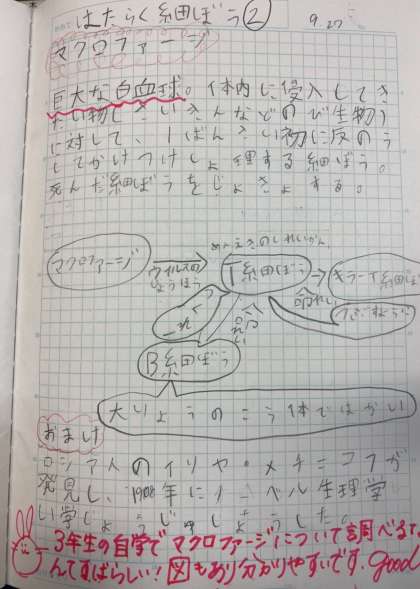 はたらく細ぼう②
9.27
マクロファージ
巨大な白血球。体内に侵入してき
た物しさいきんなどのび生物)
に対して、1ばんさい初に反のう
してかけつけしょ理する細ぼう。
死んだ細ぼうをじょきょする。
めんえきのしれいかん
マクロファージ
ウイルスの
じょうほう
T細ぼう
キラーT細ぼう
命れい
命れい
B細ぼう
大りょうのこう体ではかい
おまけ
ロシア人のイリヤ・メチニコフが
発見し、1908年にノーベル生理学
い学しょうをじゅしょうした。
3年生の自学でマクロファージについて調べるな
んてすばらしい!図もあり分かりやすいです。Good